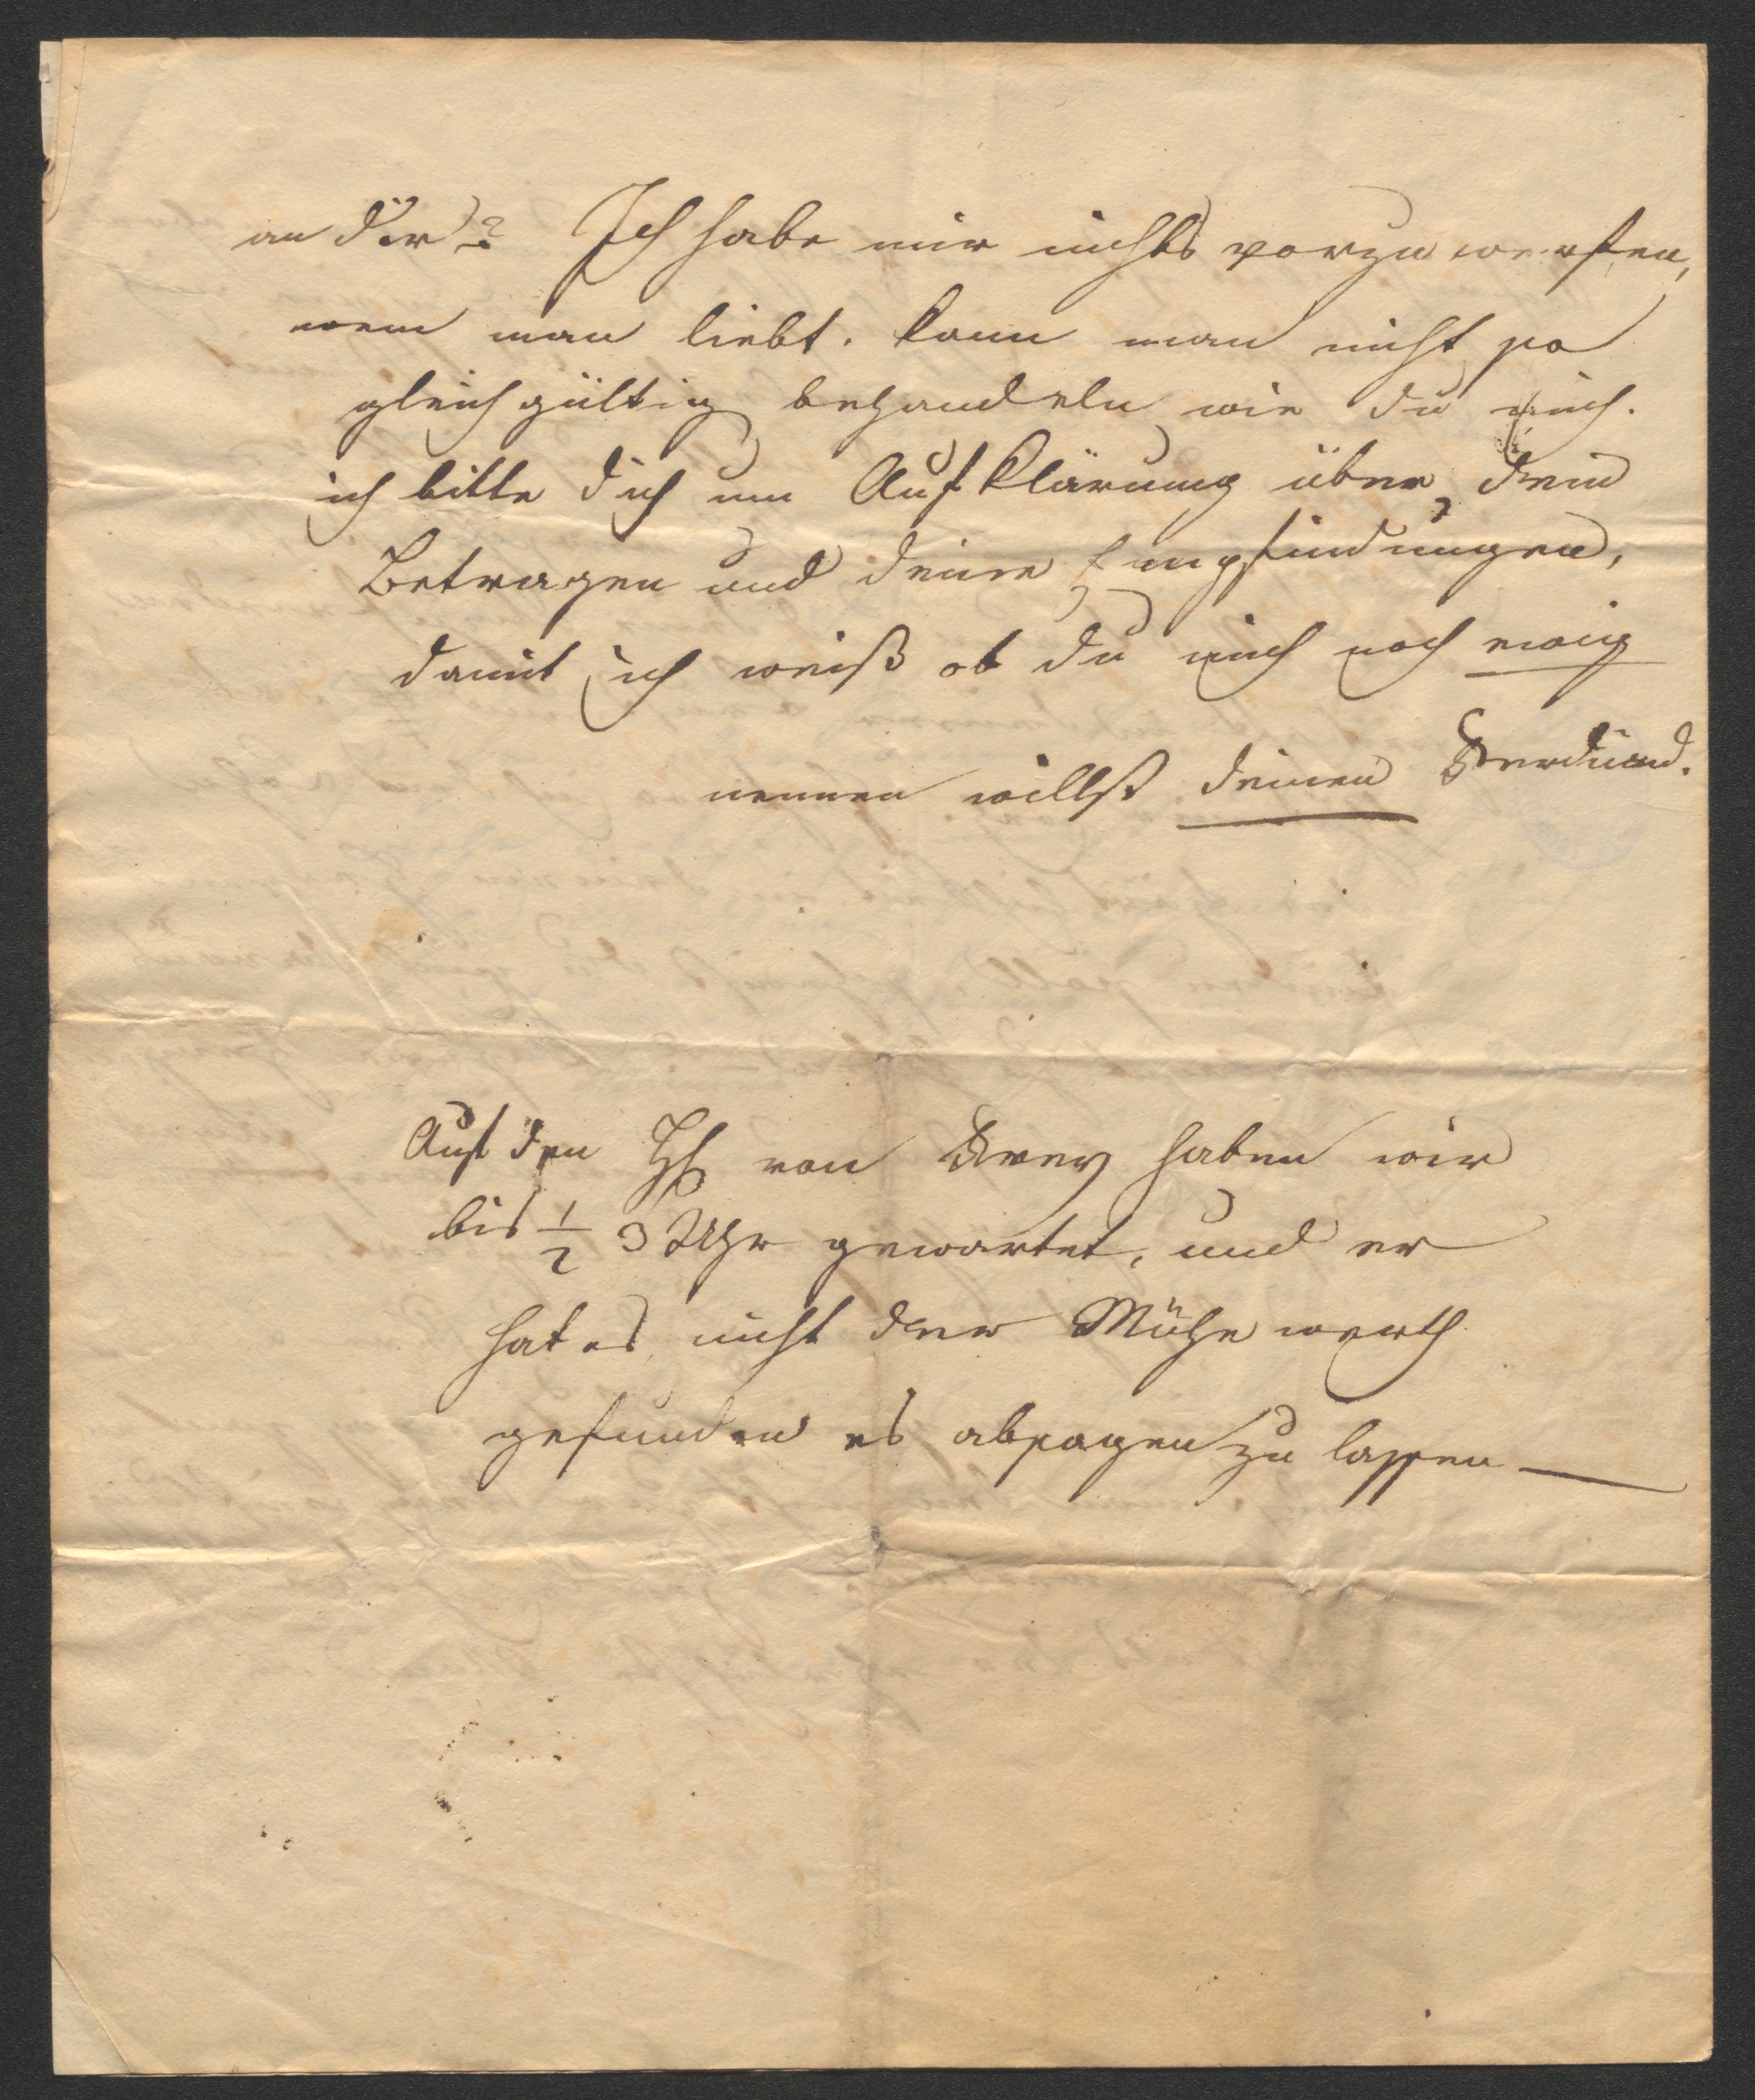 an dir? Ich habe mir nichts vorzuwerfen,
wenn man liebt. kann man nicht so
gleichgültig behandeln wie du mich.
ich bitte dich um Aufklärung über dein
Betragen und deine Empfindungen,
damit ich weiß ob du mich noch ewig
nennen willst deinen Ferdinand.
Auf den von haben wir
bis 1/2 3 Uhr gewartet, und er
hat es nicht der Mühe werth
gefunden es absagen zu lassen —